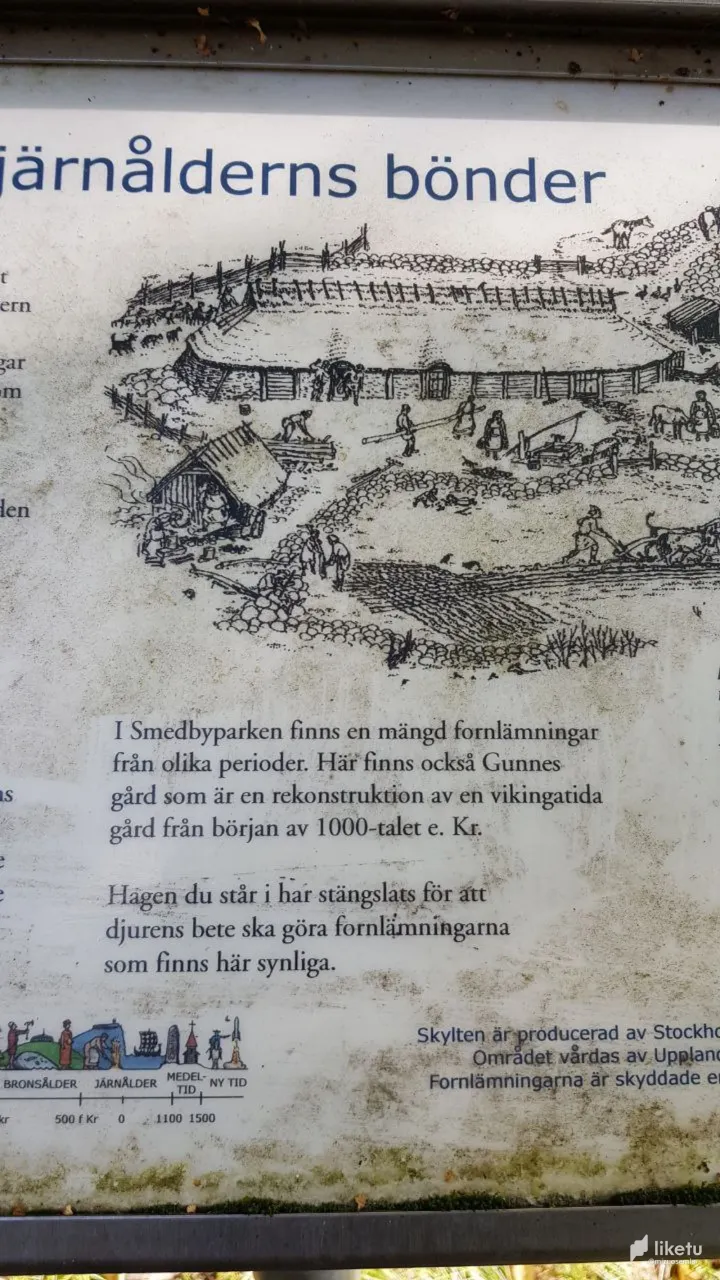 järnålderns bönder
t
ern
gar
om
den
I Smedbyparken finns en mängd fornlämningar
från olika perioder. Här finns också Gunnes
gård som är en rekonstruktion av en vikingatida
gård från början av 1000-talet e. Kr.
Hagen du står i har stängslats för att
djurens bete ska göra fornlämningarna
som finns här synliga.
ns
e
e
BRONSÅLDER JÄRNÅLDER MEDEL-TID NY TID
kr 500 f Kr 0 1100 1500
Skylten är producerad av Stockho
Området vårdas av Uppland
Fornlämningarna är skyddade en
liketu